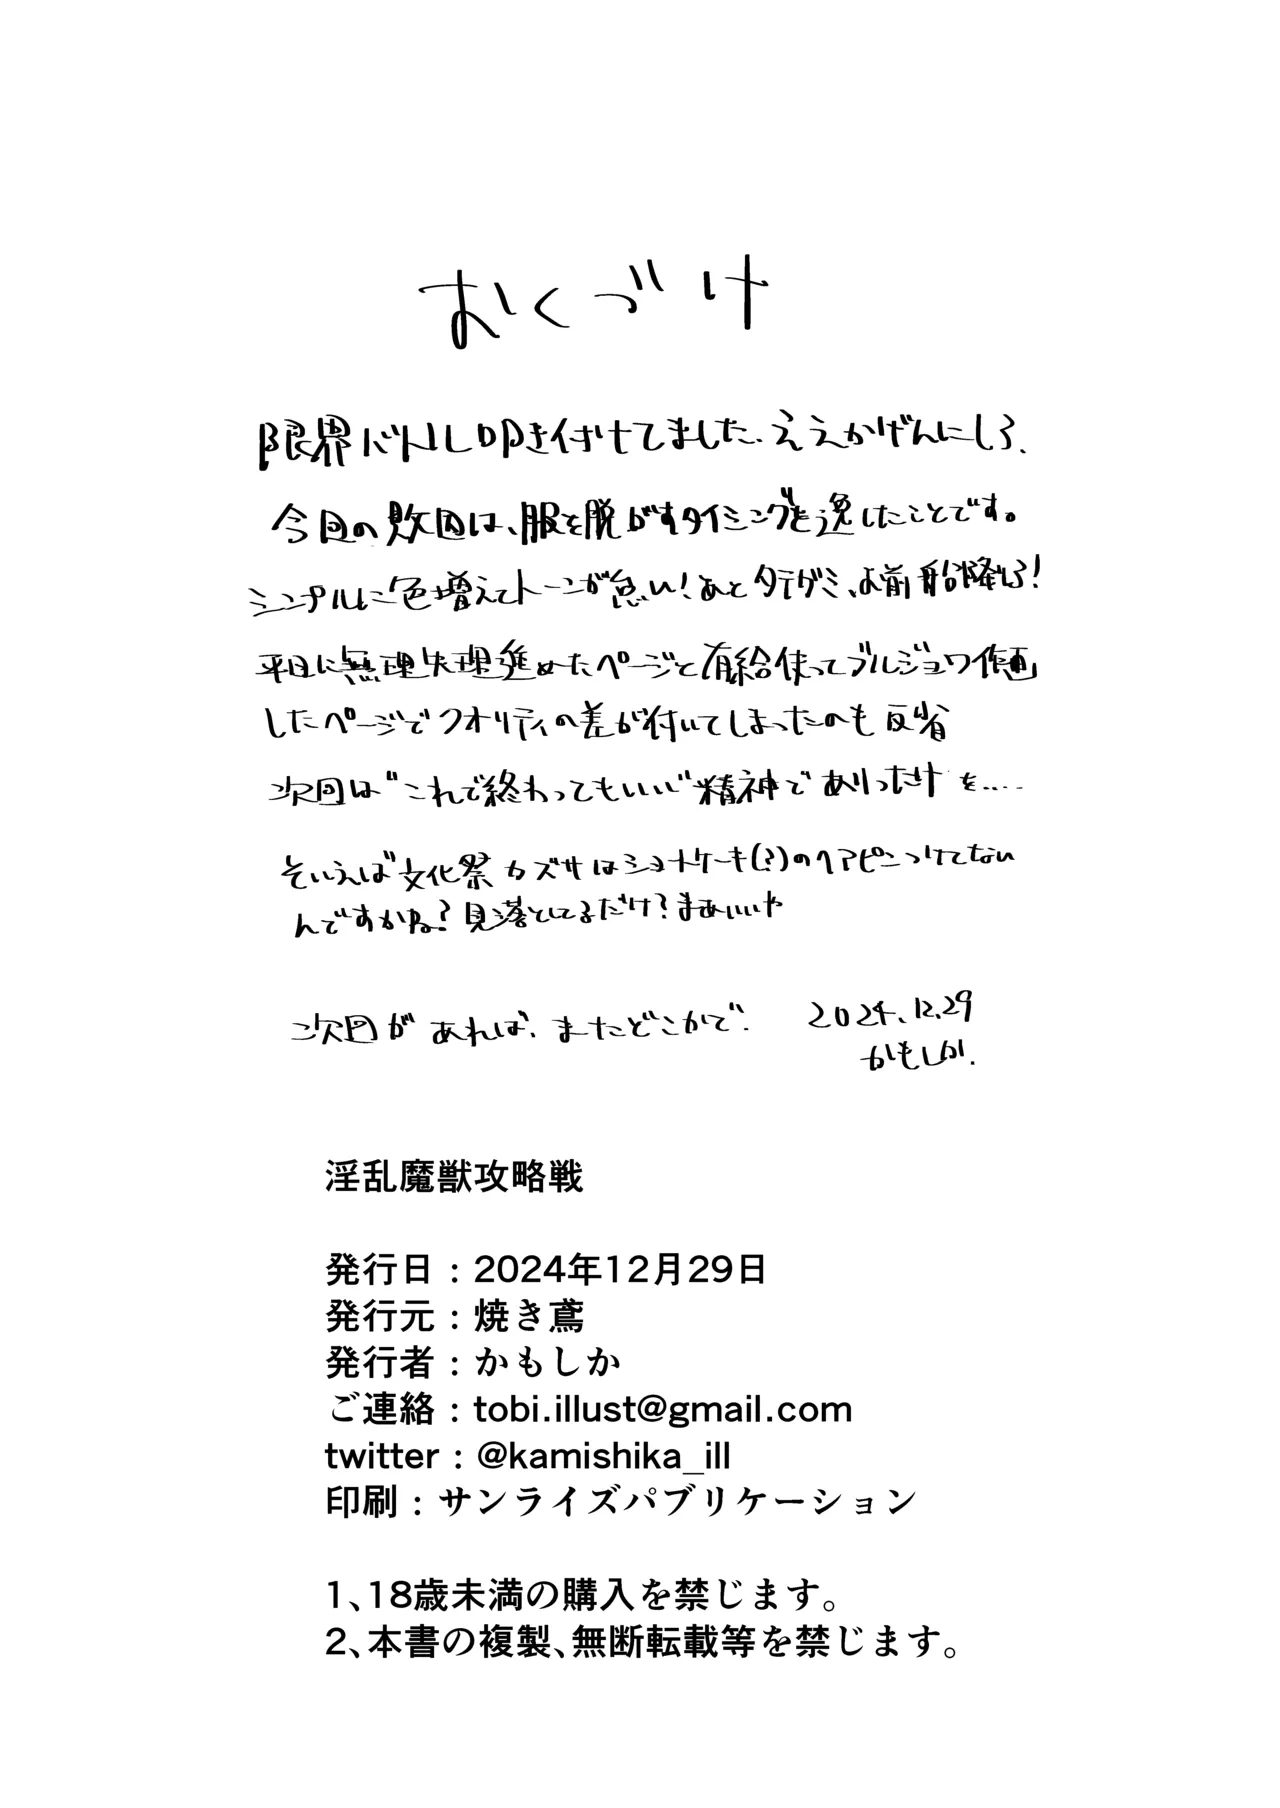 おくづけ
限界バトル叩き付けてました.ええかげんにしろ.
今回の敗因は、服を脱がすタイミングを逸したことです。
シンプルに色増えてトーンが怠い!あとタテグミ、お前船降りろ!
平日に無理矢理進めたページと有給使ってブルジョワ作画
したページでクオリティの差が付いてしまったのも反省
次回は"これで終わってもいい"精神でありったけを....
そいえば文化祭カズサはショートケーキ(?)のヘアピンつけてない
んですかね?見落としてるだけ?まあいいや
次回があれば、またどこかで. 2024.12.29
かもしか.
淫乱魔獣攻略戦
発行日：2024年12月29日
発行元：焼き鳶
発行者：かもしか
ご連絡：tobi.illust@gmail.com
twitter：@kamishika_ill
印刷：サンライズパブリケーション
1、18歳未満の購入を禁じます。
2、本書の複製、無断転載等を禁じます。